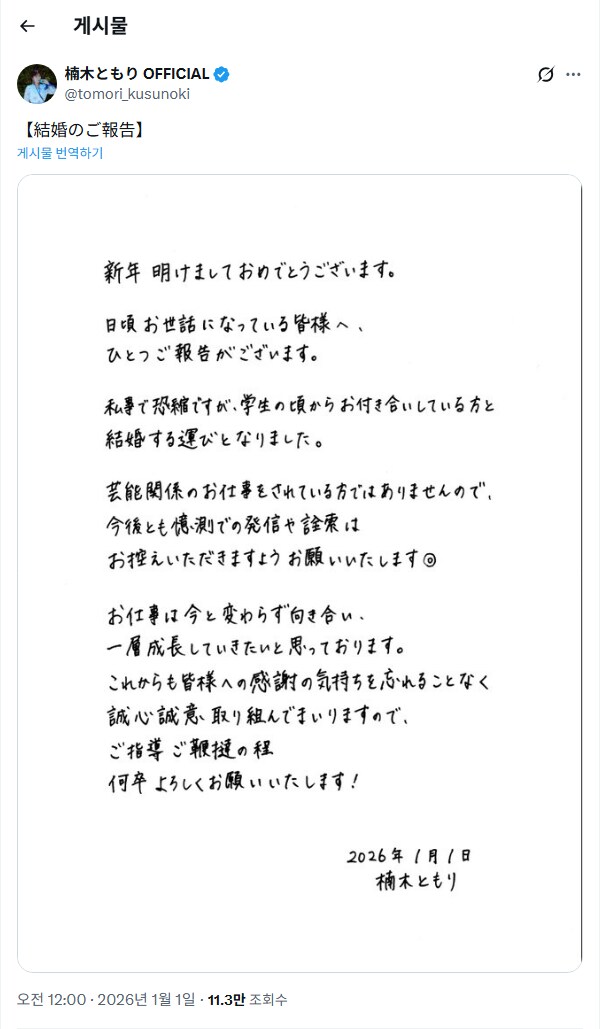 게시물
楠木ともり OFFICIAL
@tomori_kusunoki
【結婚のご報告】
게시물 번역하기
新年 明けましておめでとうございます。
日頃 お世話になっている皆様へ、
ひとつご報告がございます。
私事で恐縮ですが、学生の頃からお付き合いしている方と
結婚する運びとなりました。
芸能関係のお仕事をされている方ではありませんので、
今後とも憶測での発信や詮索は
お控えいただきますようお願いいたします◎
お仕事は今と変わらず向き合い、
一層成長していきたいと思っております。
これからも皆様への感謝の気持ちを忘れることなく
誠心誠意 取り組んでまいりますので、
ご指導ご鞭撻の程
何卒よろしくお願いいたします!
2026年1月1日
楠木ともり
오전 12:00 · 2026년 1월 1일 · 11.3만 조회수